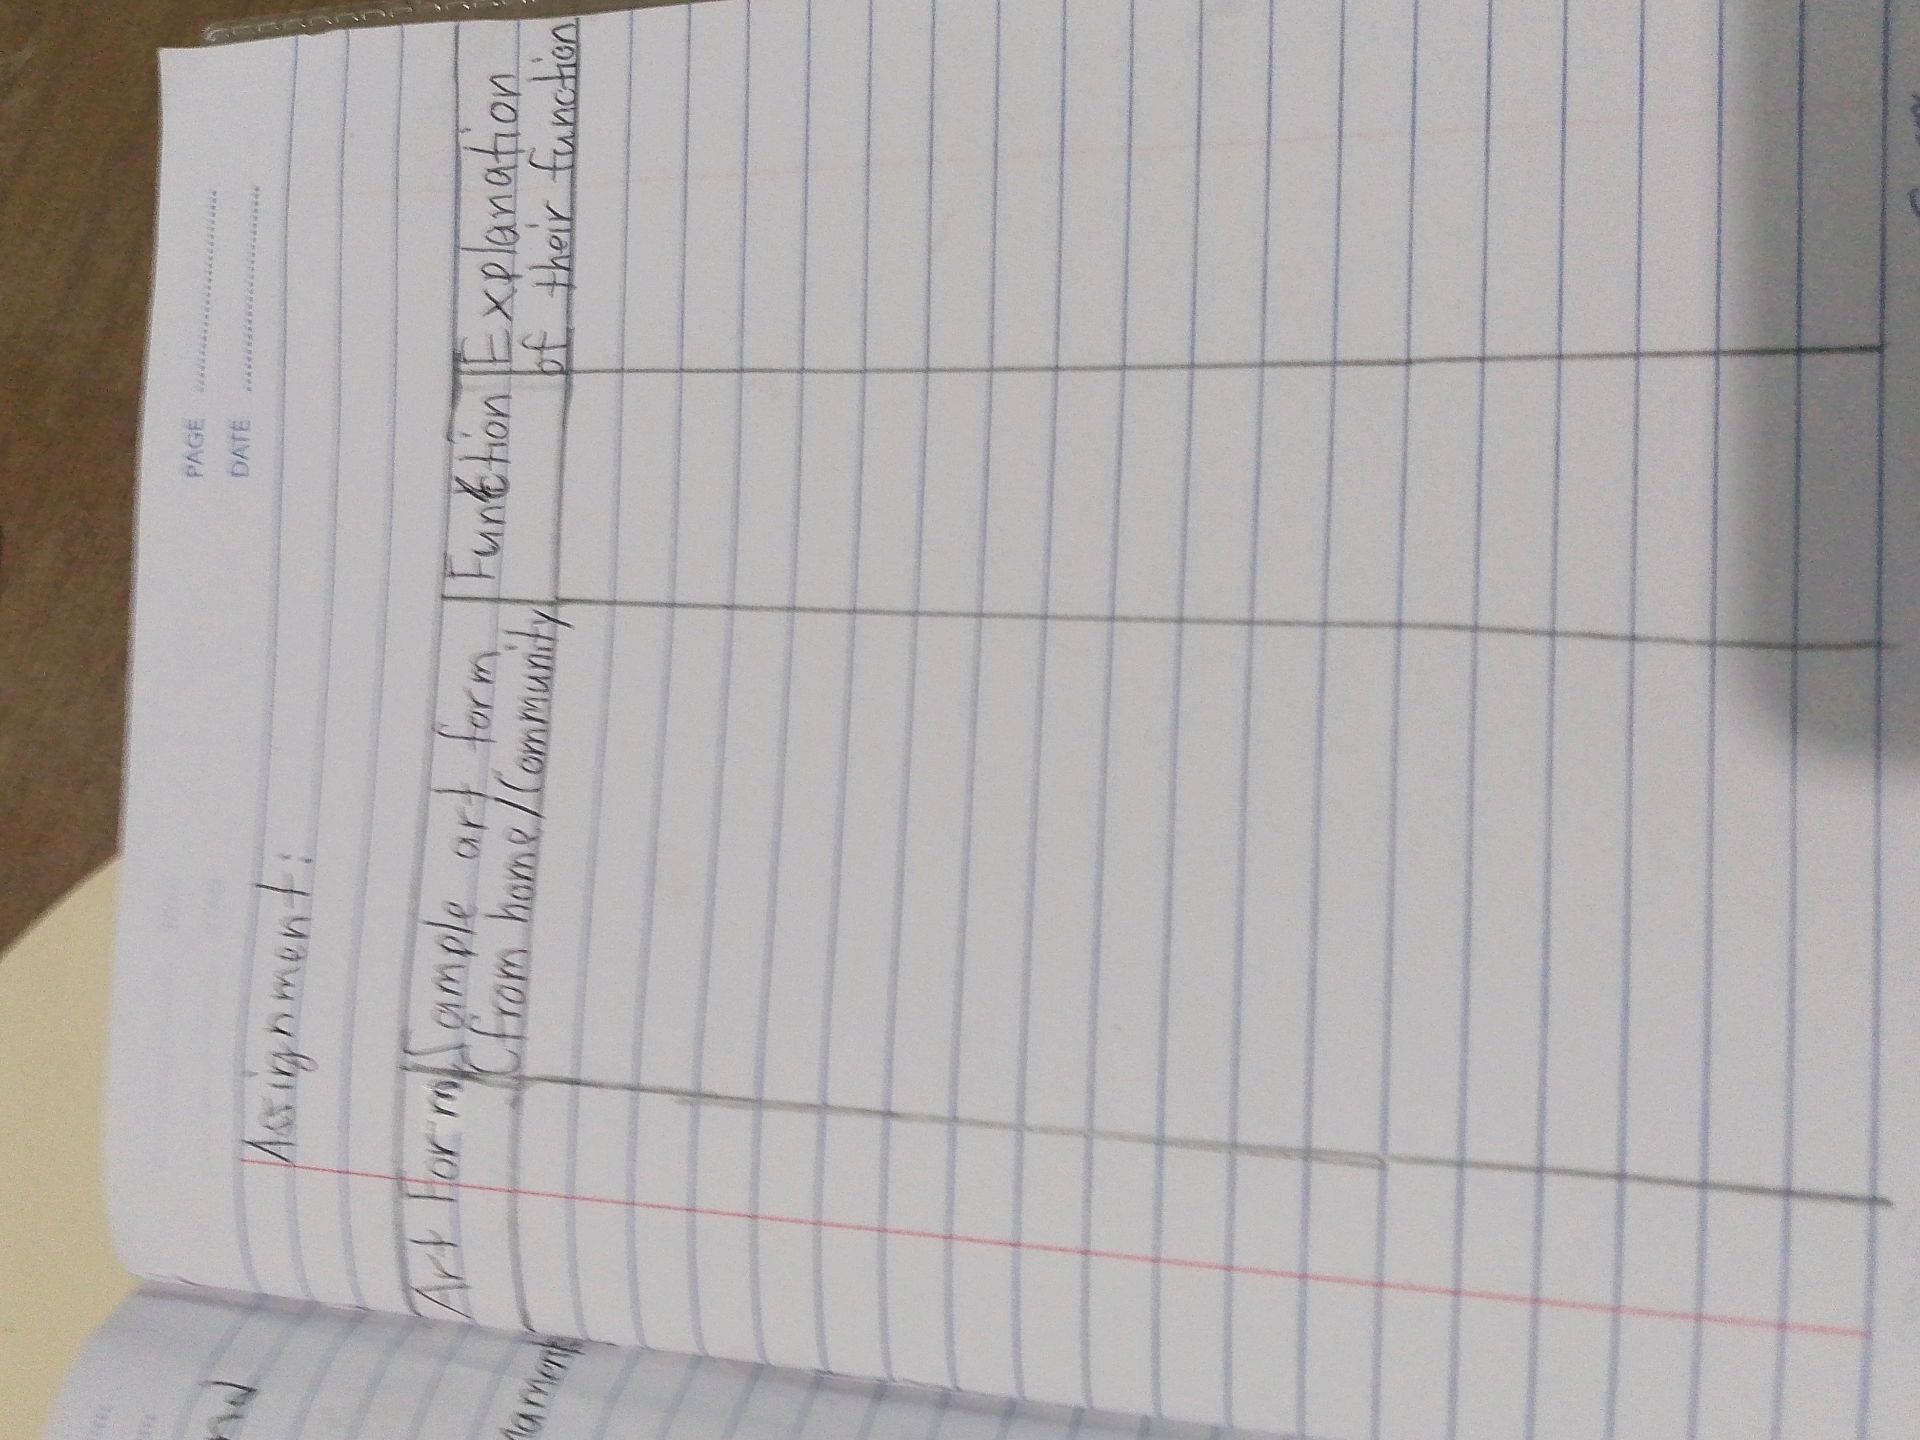 PAGE
DATE
Assignment:
Art Form
Sample art form
(from home/Community
Function
Explanation
of their function